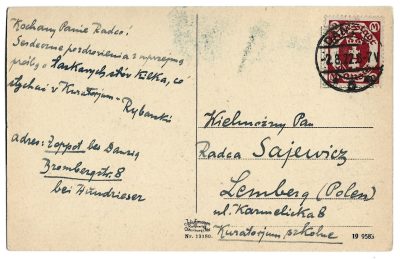 Kochany Panie Radco!
Serdeczne pozdrowienia z uprzejmą
prośbą o łaskawych słów kilka, co
słychać w Kuratorjum —
Rybarski
adres: Zoppot bei Danzig
Brombergstr. 8
bei Hundrieser
DANZIG
M
Wielmożny Pan
Radca Sajewicz
Lemberg (Polen)
ul. Karmelicka 8
Kuratorjum szkolne
Nr. 13150.
19 9585